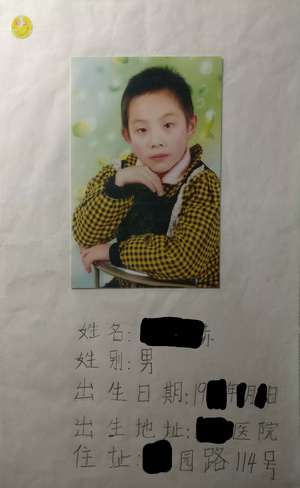 姓名:
姓别:男
出生日期:19年月日
出生地址:医院
住址:园路114号